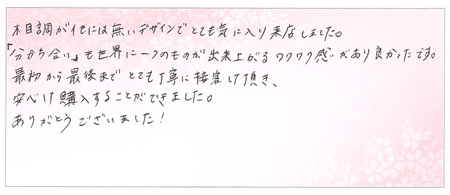 木目調が他には無いデザインでとても気に入り来店しました。
「分かち合い」も世界に一つのものが出来上がるワクワク感があり良かったです。
最初から最後までとても丁寧に接客して頂き、
安心して購入することができました。
ありがとうございました!